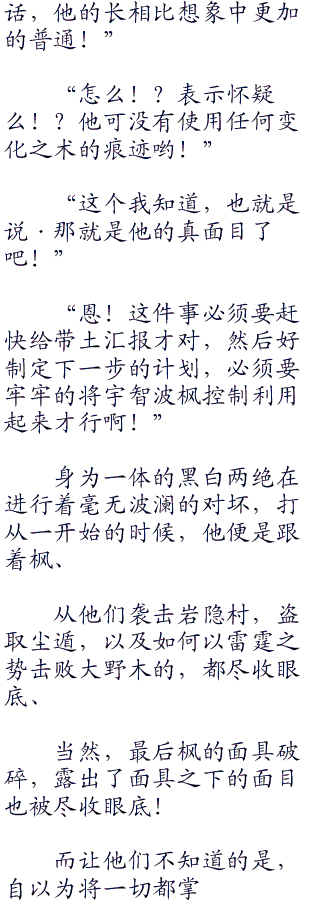 话，他的长相比想象中更加
的普通！”
“怎么！？表示怀疑
么！？他可没有使用任何变
化之术的痕迹哟！”
“这个我知道，也就是
说·那就是他的真面目了
吧！”
“恩！这件事必须要赶
快给带土汇报才对，然后好
制定下一步的计划，必须要
牢牢的将宇智波枫控制利用
起来才行啊！”
身为一体的黑白两绝在
进行着毫无波澜的对坏，打
从一开始的时候，他便是跟
着枫、
从他们袭击岩隐村，盗
取尘遁，以及如何以雷霆之
势击败大野木的，都尽收眼
底、
当然，最后枫的面具破
碎，露出了面具之下的面目
也被尽收眼底！
而让他们不知道的是，
自以为将一切都掌